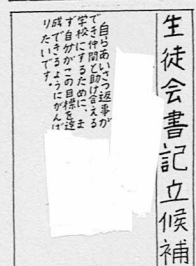 生徒会書記立候補
自らあいさつ返事が
でき仲間と助け合える
学校にするために、ま
ず自分がこの目標を達
成できるようにがんば
りたいです。